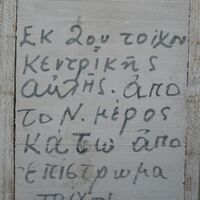 Εκ 2ου τοίχου
κεντρικής
αὐλῆς. ἀπο
το Ν. μέρος
κάτω ἀπο
ἐπίστρωμα
τοίχου